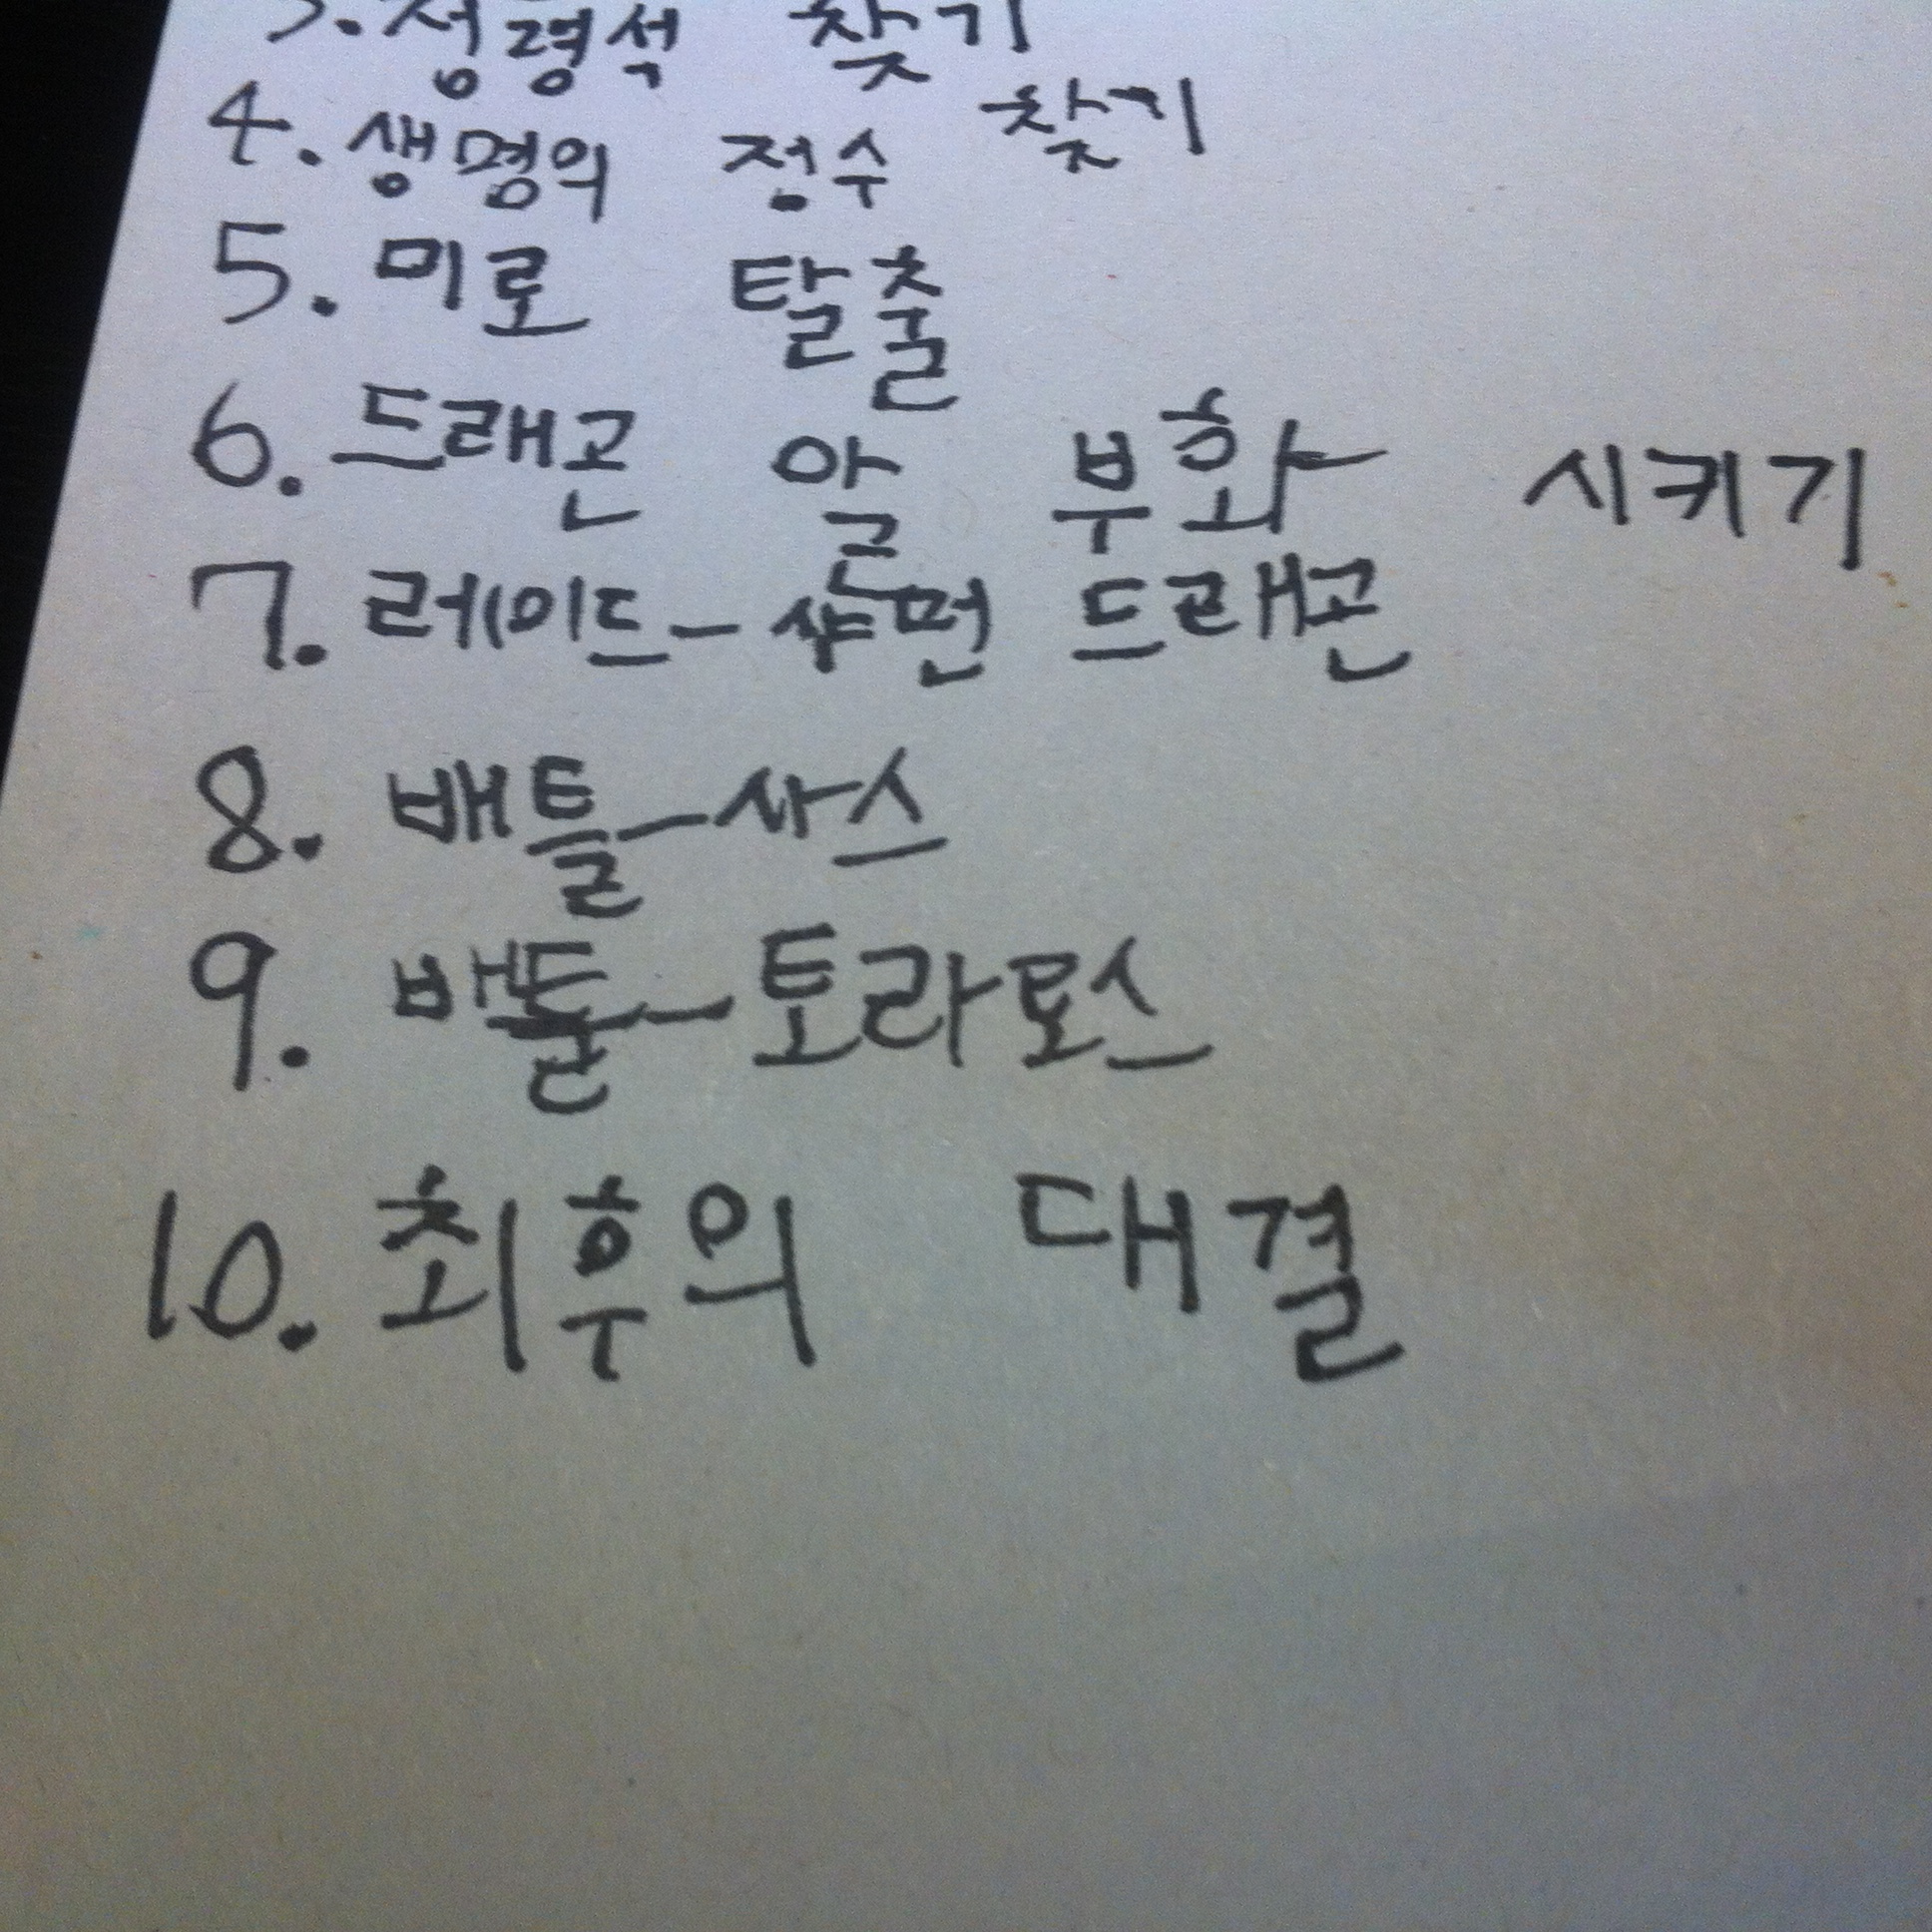 3. 정령석 찾기
4. 생명의 정수 찾기
5. 미로 탈출
6. 드래곤 알 부화 시키기
7. 레이드-샤먼 드래곤
8. 배틀-사스
9. 배틀-토라로스
10. 최후의 대결